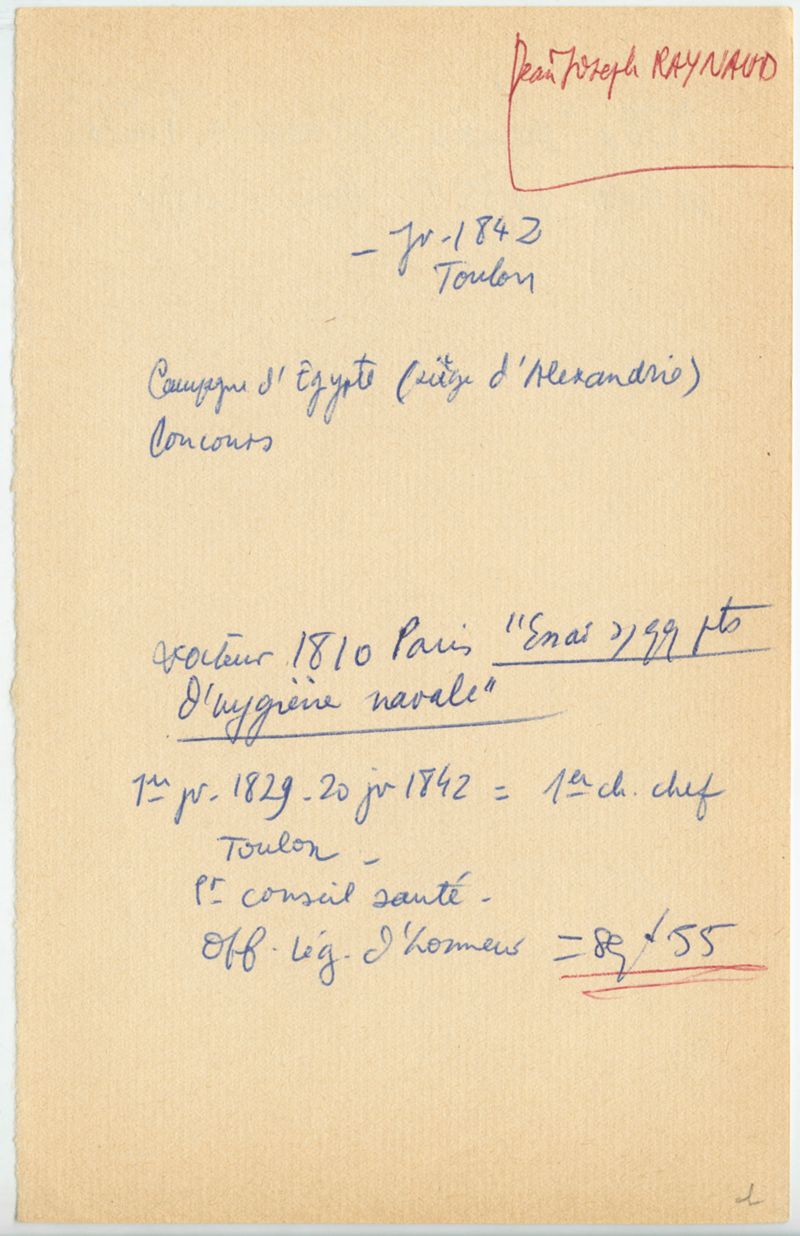 Jean Joseph RAYNAUD
– jv. 1842
Toulon
Campagne d'Egypte (siège d'Alexandrie)
Concours
Docteur 1810 Paris "Essai s/ qq pts
d'hygiène navale"
1er jv. 1829 - 20 jv 1842 = 1er ch. chef
Toulon -
Pt conseil santé -
Off. Lég. d'honneur = 89 / 55